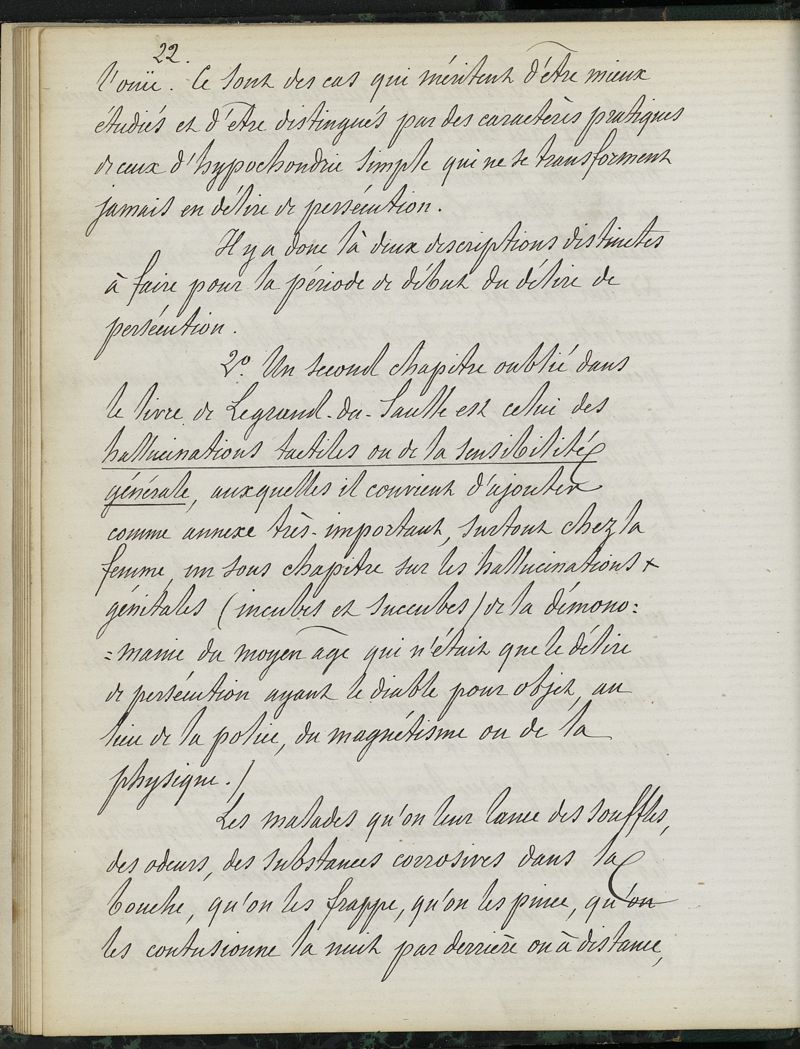 22.
l'ouïe. Ce sont des cas qui méritent d'être mieux
étudiés et d'être distingués par des caractères pratiques
de ceux d'hypochondrie simple qui ne se transforment
jamais en délire de persécution.
Il y a donc là deux descriptions distinctes
à faire pour la période de début du délire de
persécution.
2º. Un second chapitre oublié dans
le livre de Legrand-du-Saulle est celui des
hallucinations tactiles ou de la sensibilité
générale, auxquelles il convient d'ajouter
comme annexe très-important, surtout chez la
femme, un sous chapitre sur les hallucinations
génitales (incubes et succubes) de la démono=
=manie du moyen âge qui n'était que le délire
de persécution ayant le diable pour objet, au
lieu de la police, du magnétisme ou de la
physique.)
Les malades qu'on leur lance des souffles,
des odeurs, des substances corrosives dans la
bouche, qu'on les frappe, qu'on les pince, qu'on
les contusionne la nuit par derrière ou à distance,